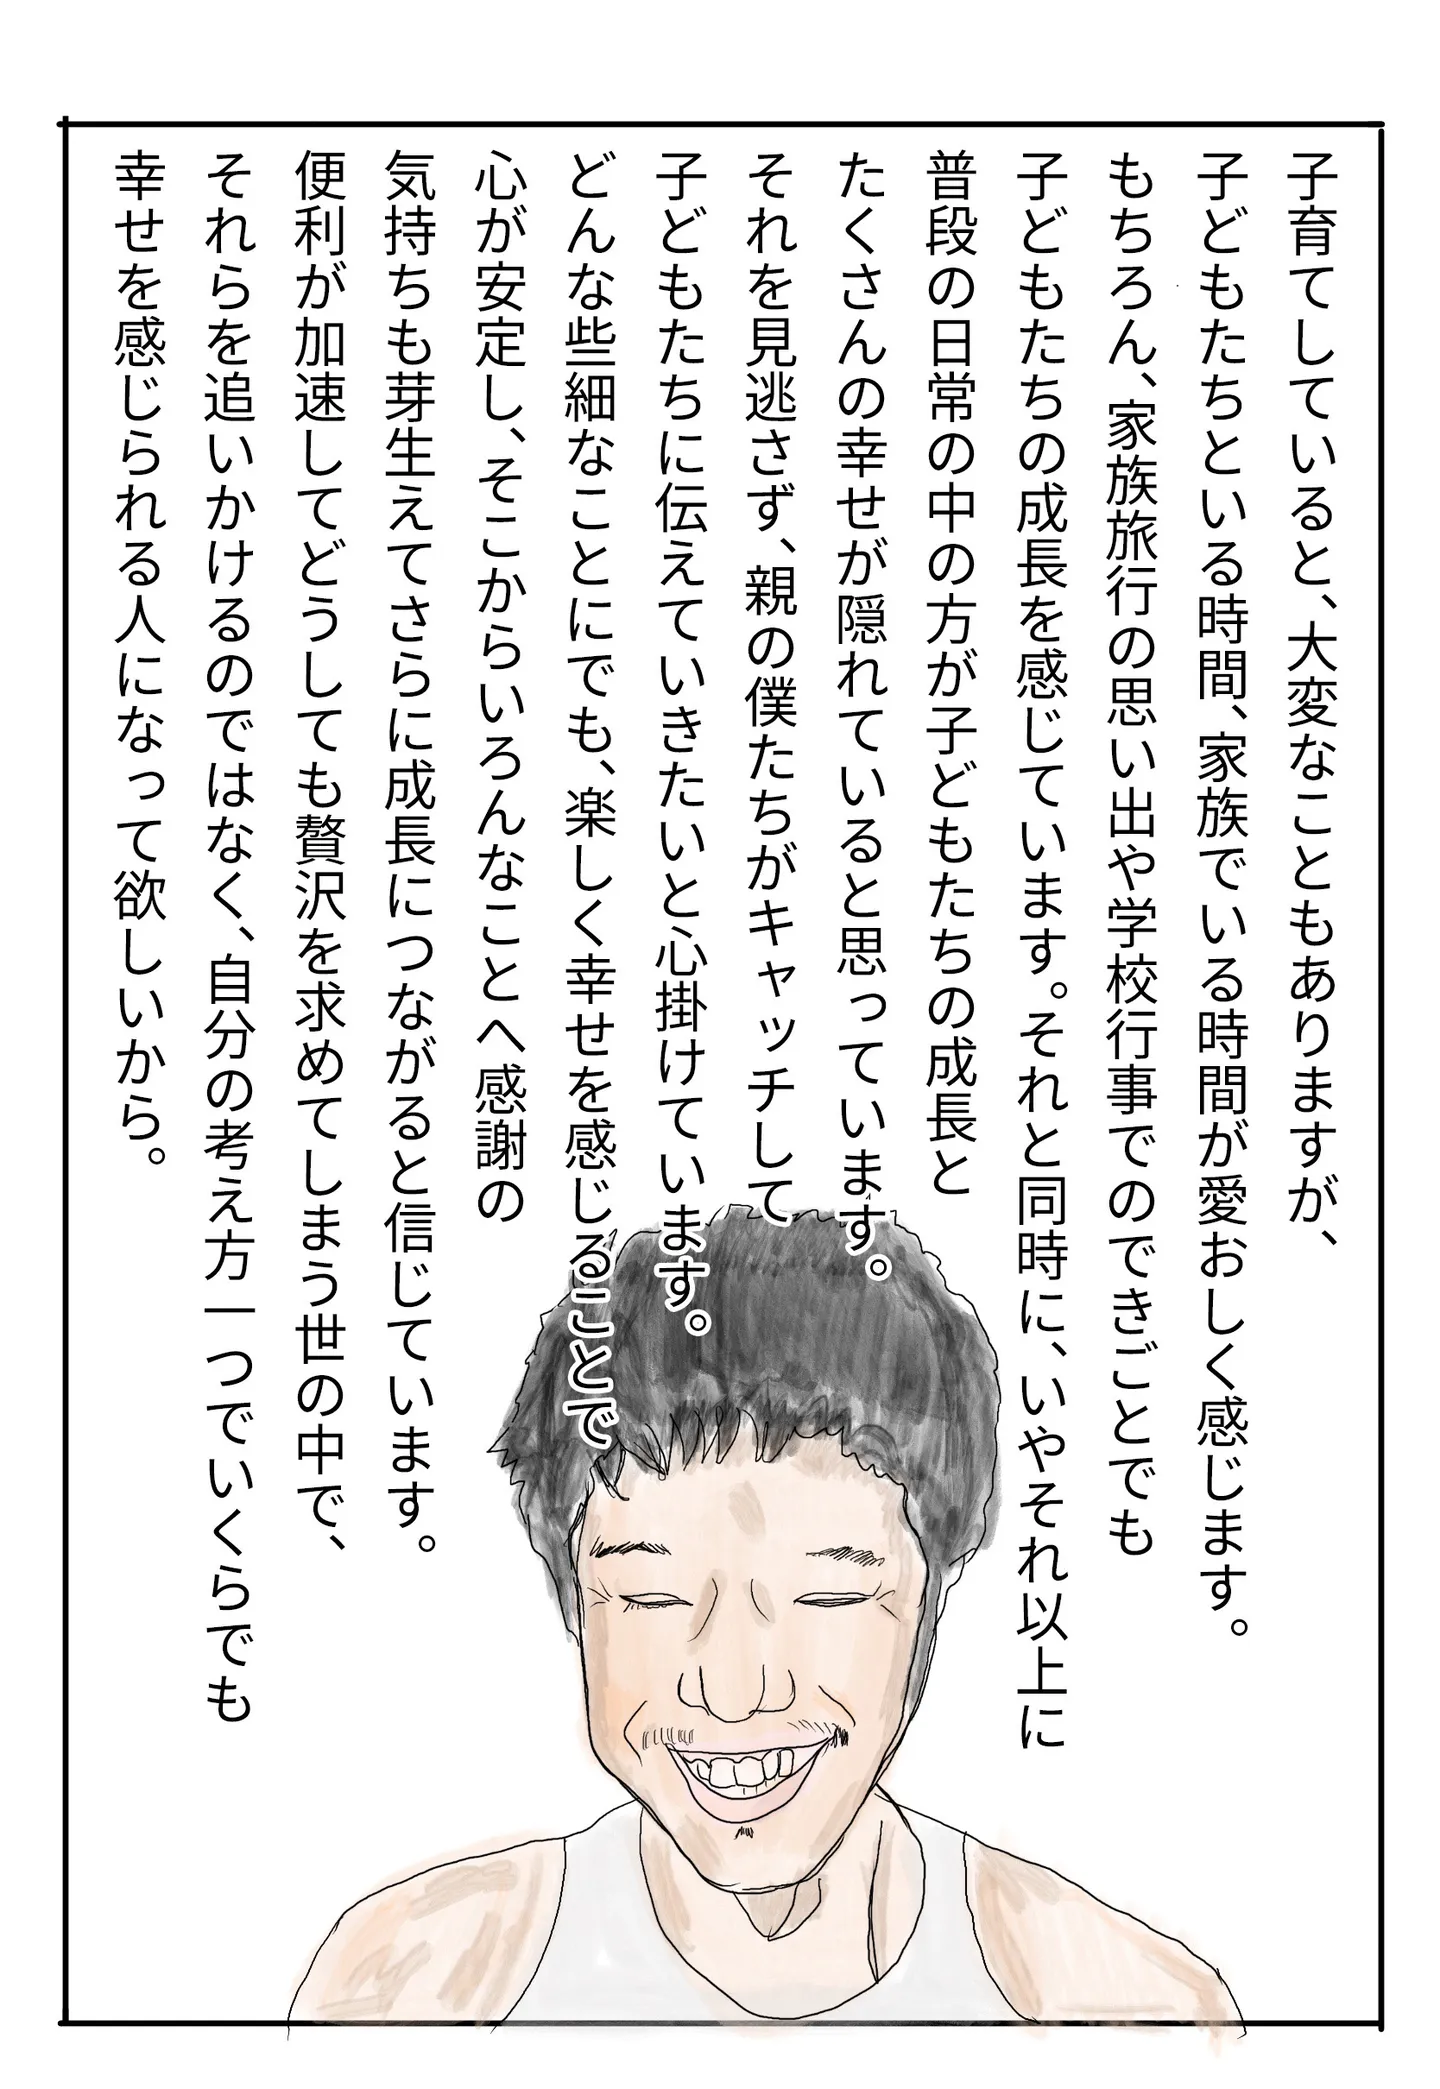 子育てしていると、大変なこともありますが、
子どもたちといる時間、家族でいる時間が愛おしく感じます。
もちろん、家族旅行の思い出や学校行事でのできごとでも
子どもたちの成長を感じています。それと同時に、いやそれ以上に
普段の日常の中の方が子どもたちの成長と
たくさんの幸せが隠れていると思っています。
それを見逃さず、親の僕たちがキャッチして
子どもたちに伝えていきたいと心掛けています。
どんな些細なことにでも、楽しく幸せを感じることで
心が安定し、そこからいろんなことへ感謝の
気持ちも芽生えてさらに成長につながると信じています。
便利が加速してどうしても贅沢を求めてしまう世の中で、
それらを追いかけるのではなく、自分の考え方一つでいくらでも
幸せを感じられる人になって欲しいから。